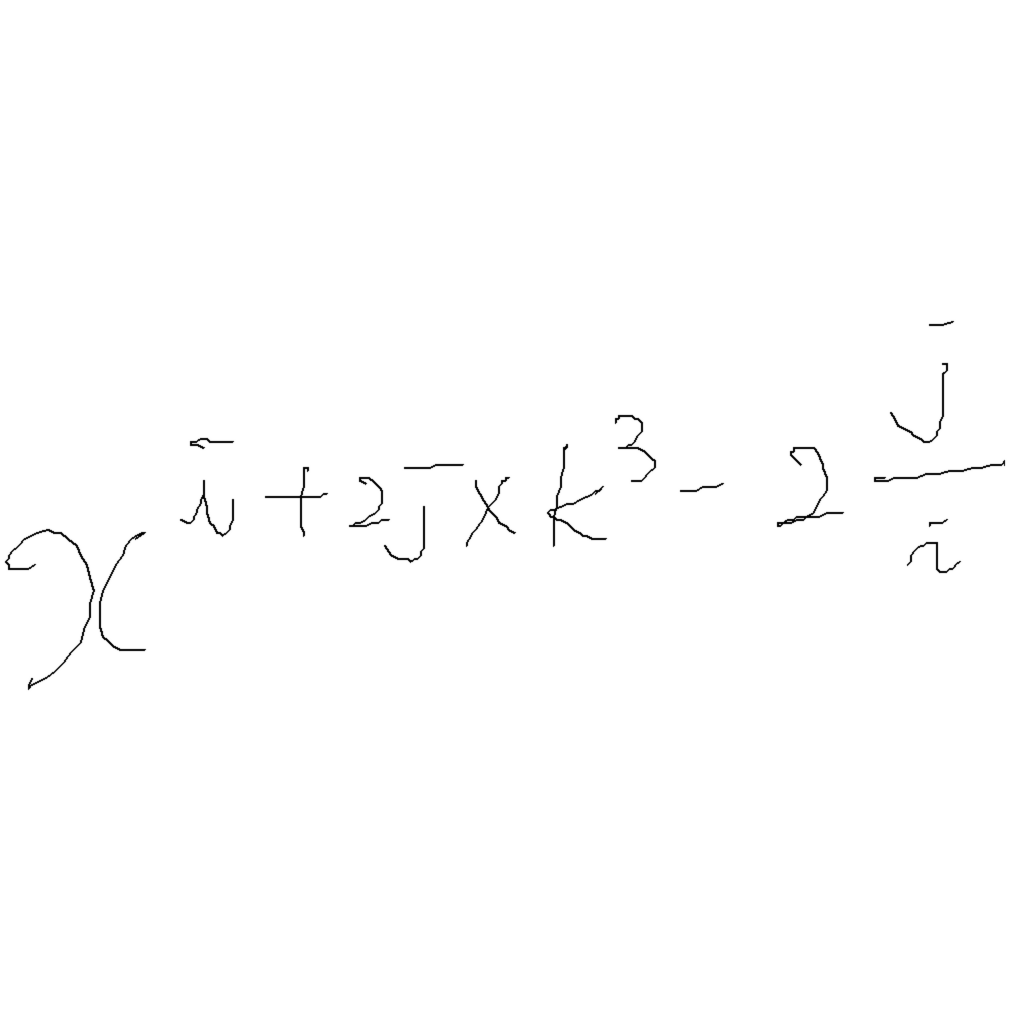 $x^{\bar{u}+2\bar{j}\times k^{3}-2\frac{\bar{j}}{\bar{i}}}$